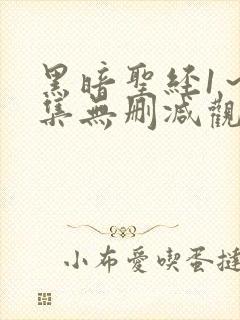 黑暗聖経1~
集無刪減觀
小布愛喫蛋撻